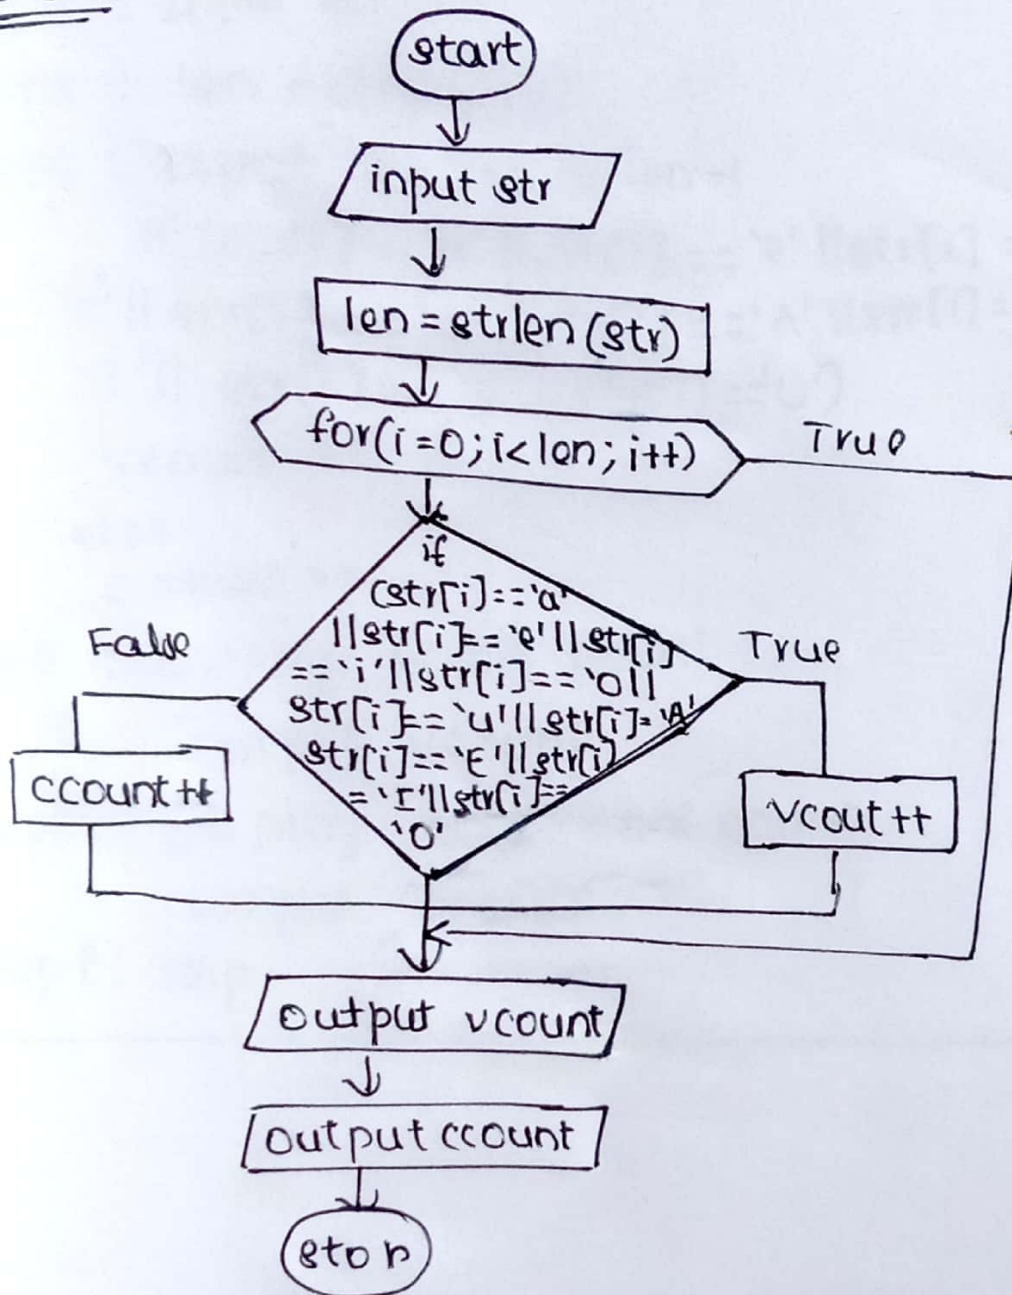 start
input str
len = strlen(str)
for(i=0; i<len; i++)
True
if
(str[i]=='a'
||str[i]=='e'||str[i]
=='i'||str[i]=='o||
str[i]=='u'||str[i]='A'
str[i]=='E'||str[i]
='I'||str[i]==
'O'
False
True
ccount++
vcout++
output vcount
output ccount
stop